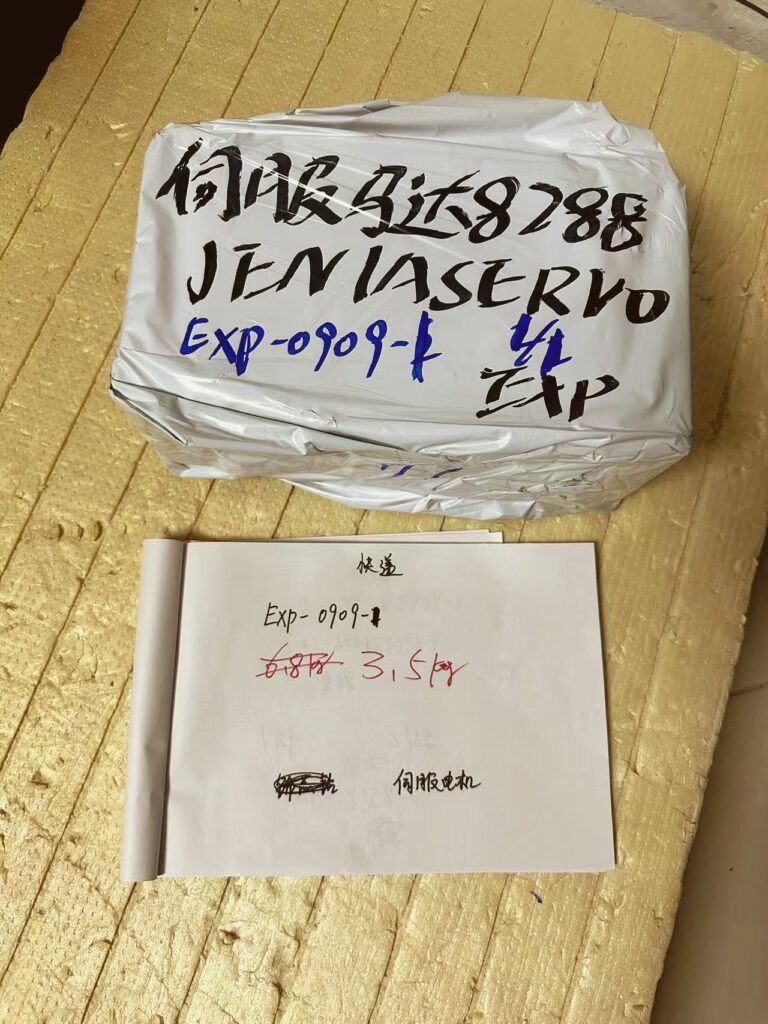 伺服马达8288
JENIASERVO
EXP-0909-1 1/1
EXP
快递
Exp-0909-1
6.8kg 3.5kg
伺服电机